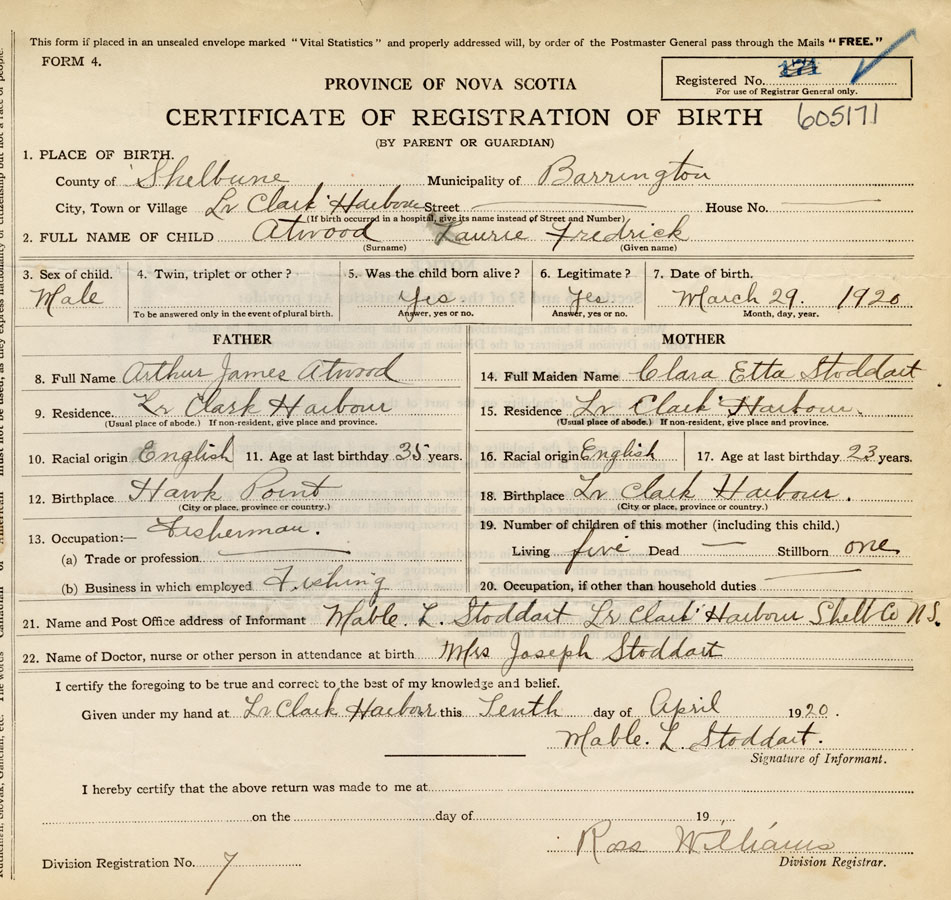 This form if placed in an unsealed envelope marked "Vital Statistics" and properly addressed will, by order of the Postmaster General pass through the Mails "FREE."
FORM 4.
PROVINCE OF NOVA SCOTIA
Registered No. 171
For use of Registrar General only.
CERTIFICATE OF REGISTRATION OF BIRTH 605171
(BY PARENT OR GUARDIAN)
1. PLACE OF BIRTH.
County of Shelburne Municipality of Barrington
City, Town or Village Lr Clark' Harbour Street House No.
(If birth occurred in a hospital, give its name instead of Street and Number)
2. FULL NAME OF CHILD Atwood Laurie Fredrick
(Surname) (Given name)
3. Sex of child. 4. Twin, triplet or other? 5. Was the child born alive? 6. Legitimate? 7. Date of birth.
Male Yes Yes March 29. 1920
To be answered only in the event of plural birth. Answer, yes or no. Answer, yes or no. Month, day, year.
FATHER MOTHER
8. Full Name Arthur James Atwood 14. Full Maiden Name Clara Etta Stoddart
9. Residence. Lr Clark Harbour 15. Residence Lr Clark' Harbour.
(Usual place of abode.) If non-resident, give place and province. (Usual place of abode.) If non-resident, give place and province.
10. Racial origin English 11. Age at last birthday 35 years. 16. Racial origin English 17. Age at last birthday 23 years.
12. Birthplace Hawk Point 18. Birthplace Lr Clark Harbour.
(City or place, province or country.) (City or place, province or country.)
13. Occupation:— Fisherman. 19. Number of children of this mother (including this child.)
(a) Trade or profession Living five Dead — Stillborn one
(b) Business in which employed Fishing 20. Occupation, if other than household duties
21. Name and Post Office address of Informant Mable. L. Stoddart Lr Clark' Harbour Shelb Co N.S.
22. Name of Doctor, nurse or other person in attendance at birth Mrs Joseph Stoddart
I certify the foregoing to be true and correct to the best of my knowledge and belief.
Given under my hand at Lr Clark Harbour this Tenth day of April 1920.
Mable. L. Stoddart.
Signature of Informant.
I hereby certify that the above return was made to me at
on the day of 19
Ross Williams
Division Registration No. 7 Division Registrar.